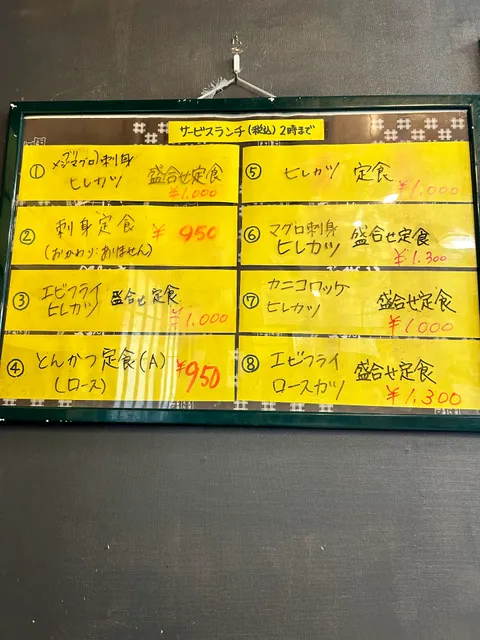 サービスランチ(税込)2時まで
① ブリ
メジマグロ刺身
ヒレカツ 盛合せ定食
¥1.000
② 刺身定食 ¥950
(おかわりありません)
③ エビフライ
ヒレカツ 盛合せ定食
¥1.000
④ とんかつ定食(A)
(ロース) ¥950
⑤ ヒレカツ 定食
¥1.000
⑥ マグロ刺身
ヒレカツ 盛合せ定食
¥1.300
⑦ カニコロッケ
ヒレカツ 盛合せ定食
¥1000
⑧ エビフライ
ロースカツ 盛合せ定食
¥1.300